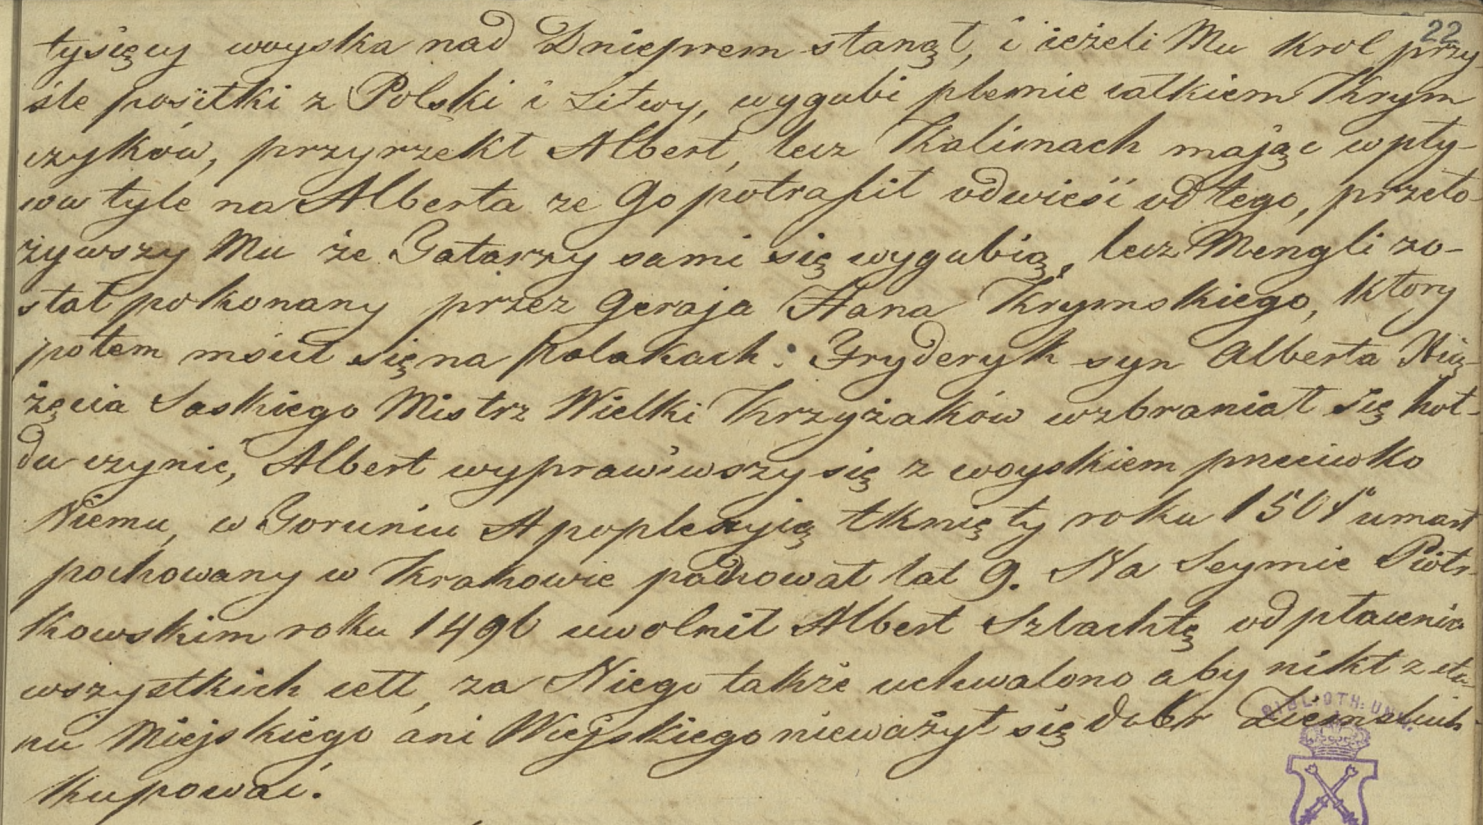 22
tysięcy woyska nad Dnieprem stanął, i ieżeli Mu Krol przy-
śle positki z Polski i Litwy, wygubi plemie całkiem Krym
czyków, przyrzekł Albert, lecz Kalimach mając wpły-
ww tyle na Alberta ze Go potrafił odwieść od tego, przeło
żywszy Mu że Tatarzy sami się wygubią, lecz Mengli zo-
stał pokonany przez Geraja Hana Krymskiego, ktory
potem mścił się na Polakach: Fryderyk syn Alberta Xią
żęcia Saskiego Mistrz Wielki Krzyżaków wzbraniał się hoł-
du czynić, Albert wyprawiwszy się z woyskiem przeciwko
Niemu, w Toruniu Apoplexyią tknięty roku 1501 umarł
pochowany w Krakowie panował lat 9. Na Seymie Piotr-
kowskim roku 1496 uwolnił Albert Szlachtę od płacenia
wszystkich cełł, za Niego także uchwalono aby nikt z sta-
nu Miejskiego ani Wiejskiego nieważył się dobr Ziemskich
kupować.
BIBLIOTH. UNIV.